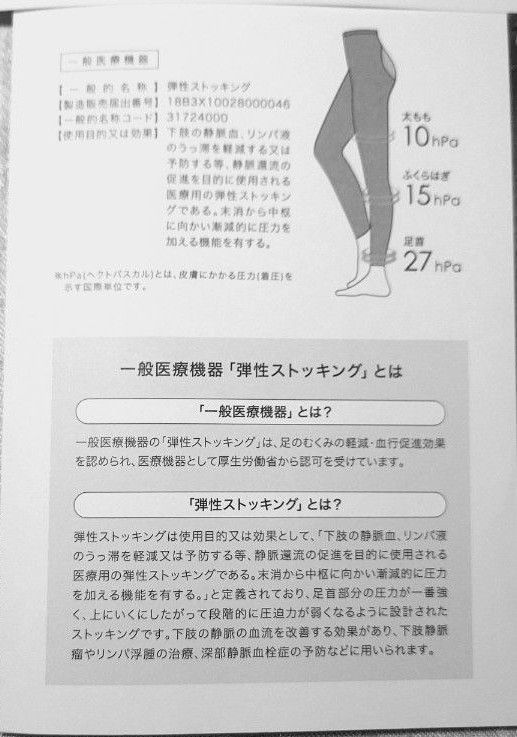 一般医療機器
【一般的名称】 弾性ストッキング
【製造販売届出番号】 18B3X10028000046
【一般的名称コード】 31724000
【使用目的又は効果】 下肢の静脈血、リンパ液
のうっ滞を軽減する又は
予防する等、静脈還流の
促進を目的に使用される
医療用の弾性ストッキン
グである。末消から中枢
に向かい漸減的に圧力を
加える機能を有する。
※hPa(ヘクトパスカル)とは、皮膚にかかる圧力(着圧)を
示す国際単位です。
太もも
10hPa
ふくらはぎ
15hPa
足首
27hPa
一般医療機器「弾性ストッキング」とは
「一般医療機器」とは?
一般医療機器の「弾性ストッキング」は、足のむくみの軽減・血行促進効果
を認められ、医療機器として厚生労働省から認可を受けています。
「弾性ストッキング」とは?
弾性ストッキングは使用目的又は効果として、「下肢の静脈血、リンパ液
のうっ滞を軽減又は予防する等、静脈還流の促進を目的に使用される
医療用の弾性ストッキングである。末消から中枢に向かい漸減的に圧力
を加える機能を有する。」と定義されており、足首部分の圧力が一番強
く、上にいくにしたがって段階的に圧迫力が弱くなるように設計された
ストッキングです。下肢の静脈の血流を改善する効果があり、下肢静脈
瘤やリンパ浮腫の治療、深部静脈血栓症の予防などに用いられます。